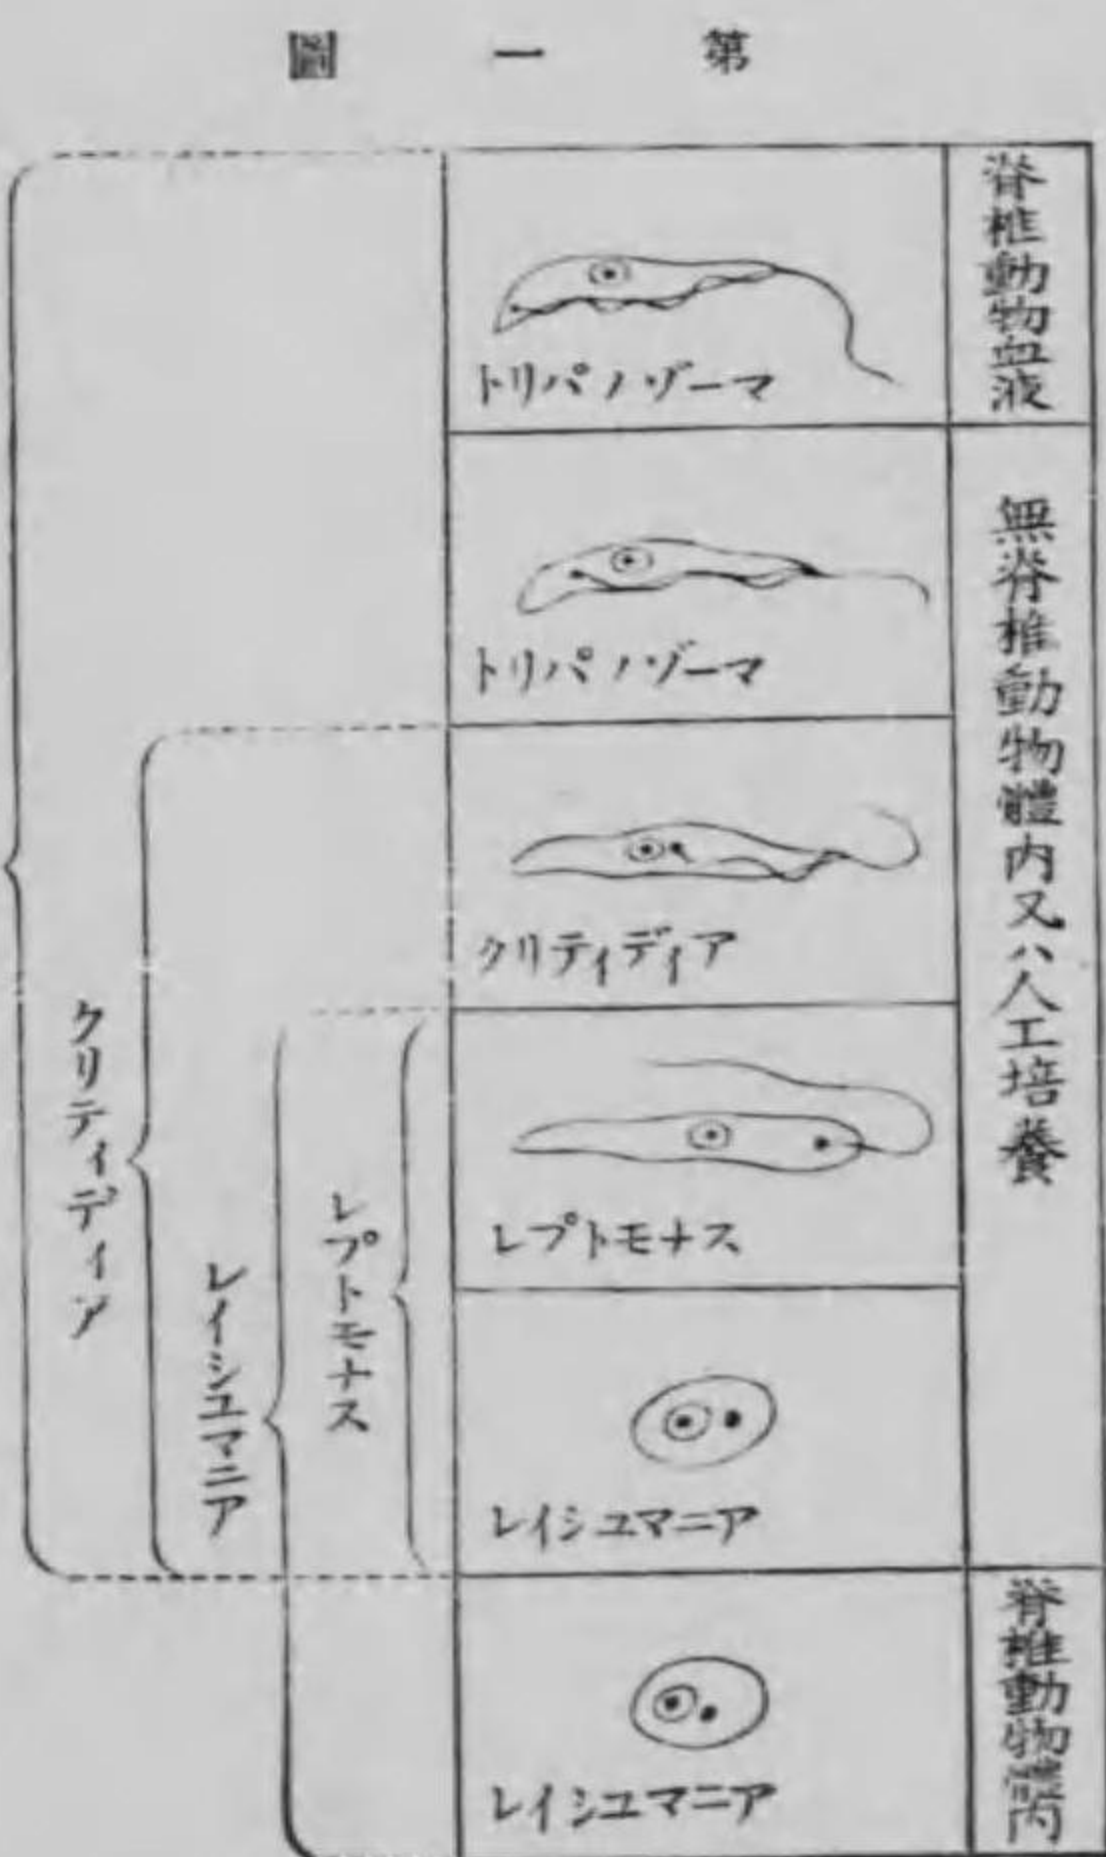 第一圖
脊椎動物血液
無脊椎動物體内又ハ人工培養
脊椎動物體内
トリパノゾーマ
トリパノゾーマ
クリティディア
レプトモナス
レイシユマニア
レイシユマニア
レプトモナス
レイシユマニア
クリティディア